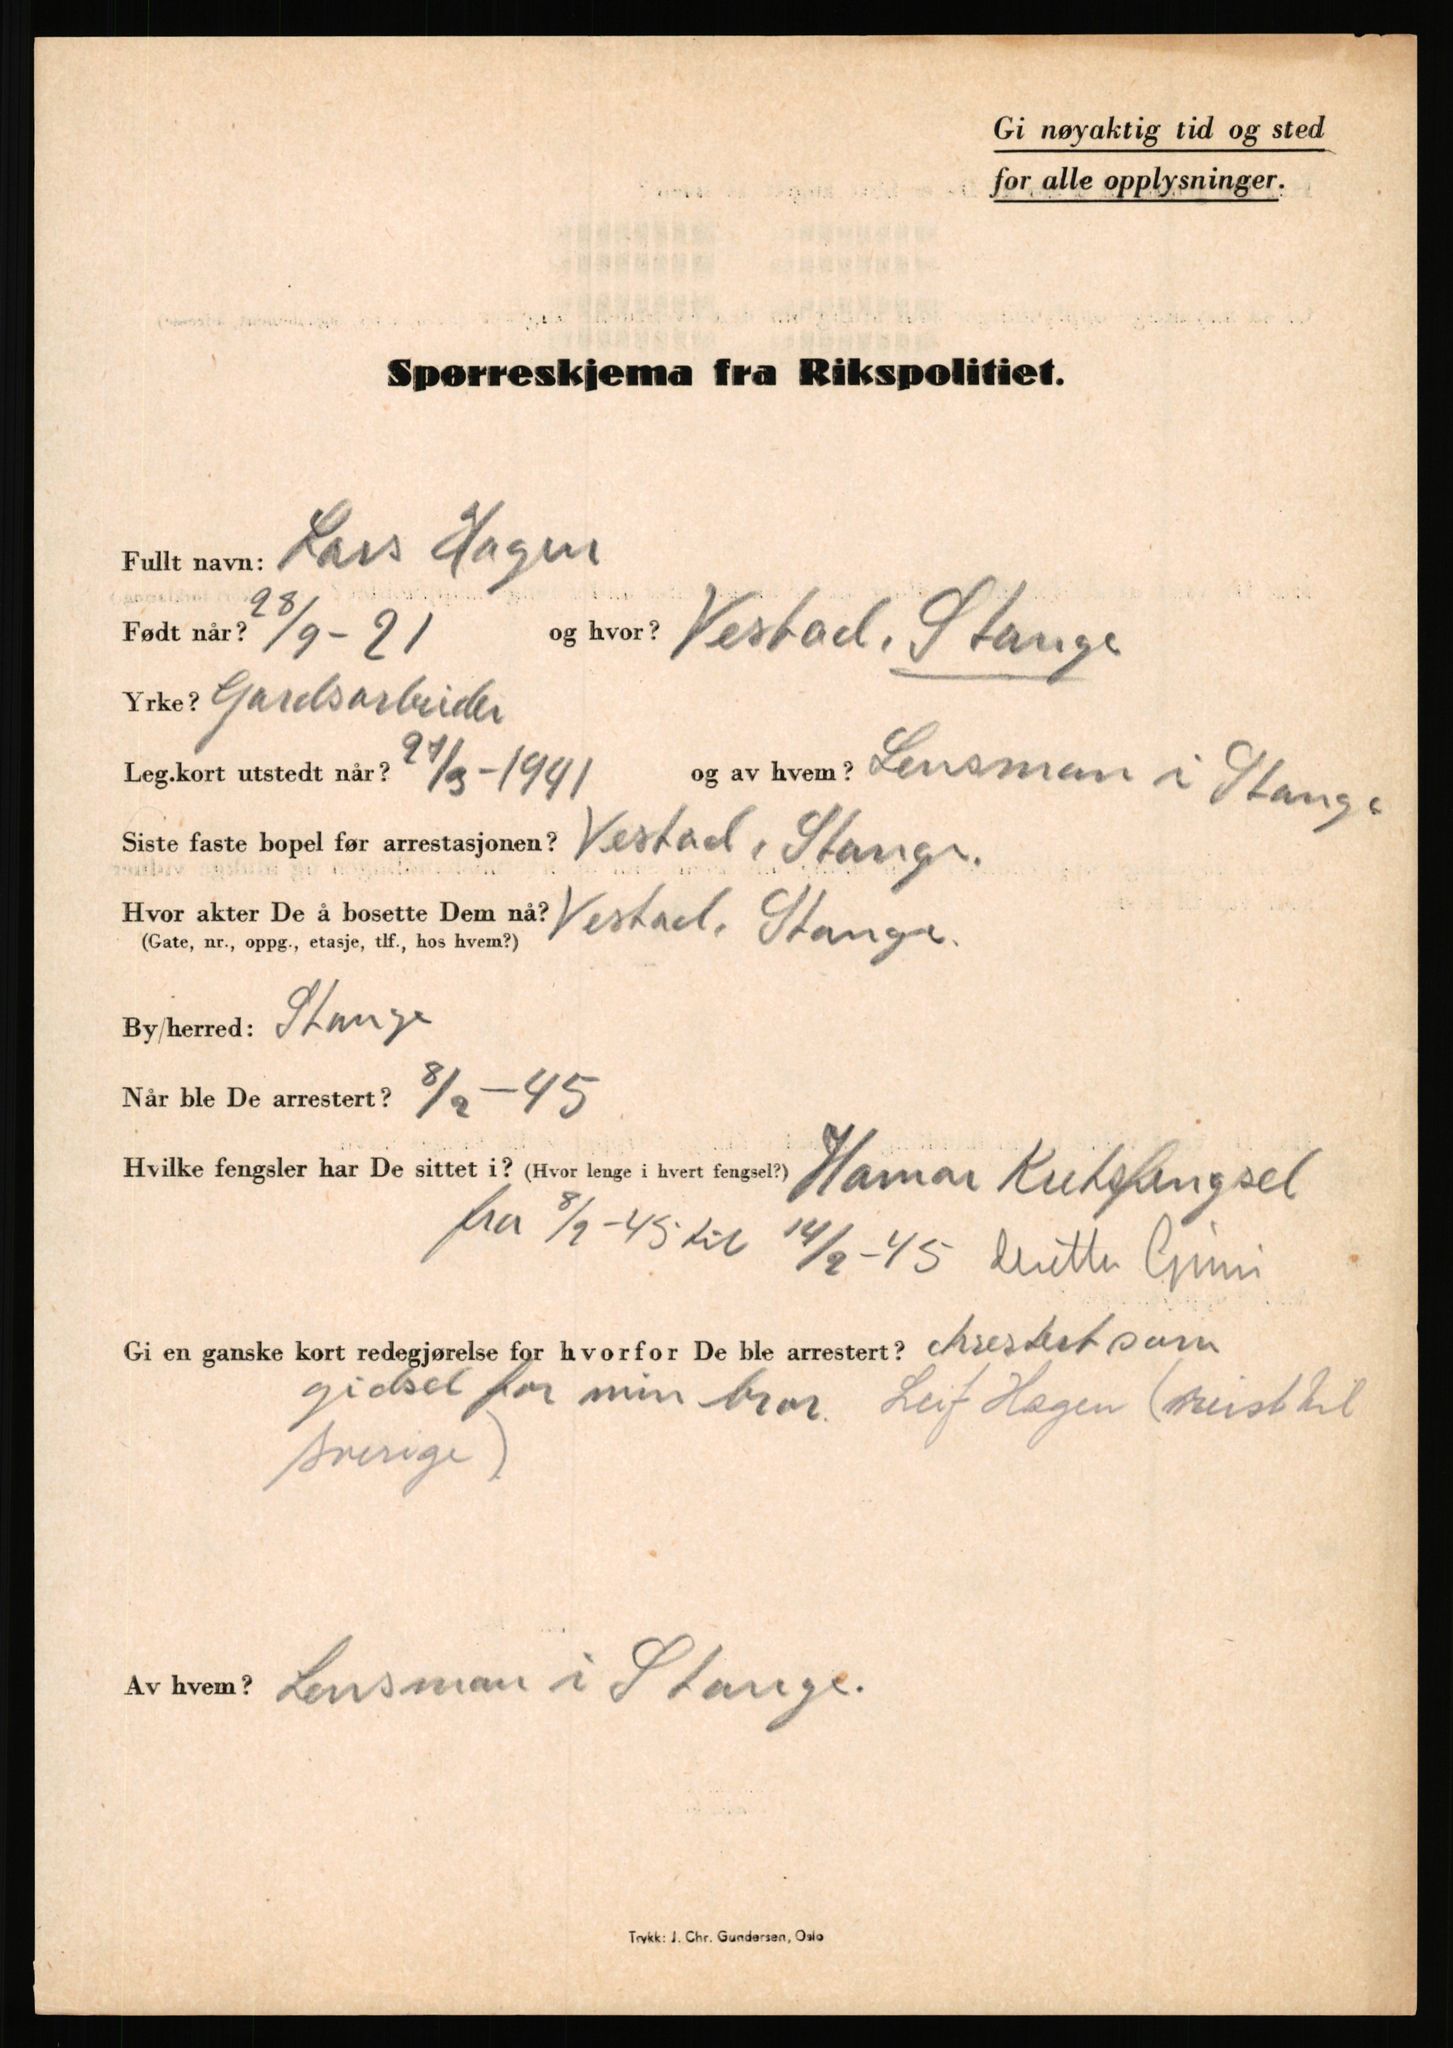 Gi nøyaktig tid og sted
for alle opplysninger.
Spørreskjema fra Rikspolitiet.
Fullt navn: Lars Hagen
Født når? 28/9-21 og hvor? Vestad, Stange
Yrke? Gardsarbeider
Leg.kort utstedt når? 27/3-1941 og av hvem? Lensman i Stange
Siste faste bopel før arrestasjonen? Vestad, Stange.
Hvor akter De å bosette Dem nå? Vestad, Stange.
(Gate, nr., oppg., etasje, tlf., hos hvem?)
By/herred: Stange
Når ble De arrestert? 8/2-45
Hvilke fengsler har De sittet i? (Hvor lenge i hvert fengsel?) Hamar Kretsfengsel
fra 8/2-45 til 14/2-45 deretter Grini
Gi en ganske kort redegjørelse for hvorfor De ble arrestert? Arrestert som
gidsel for min bror. Leif Hagen (reist til
Sverige)
Av hvem? Lensman i Stange.
Trykk: J. Chr. Gundersen, Oslo